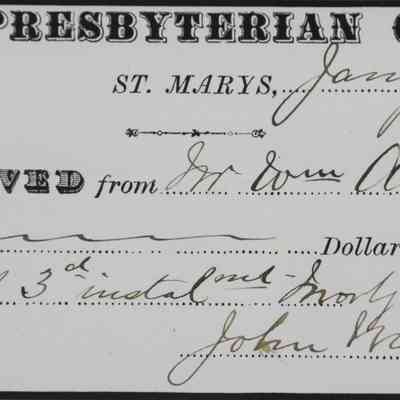 PRESBYTERIAN C
ST. MARYS, Jany
VED from Mr Wm A
Dollar
3d instalmt Mortg
John